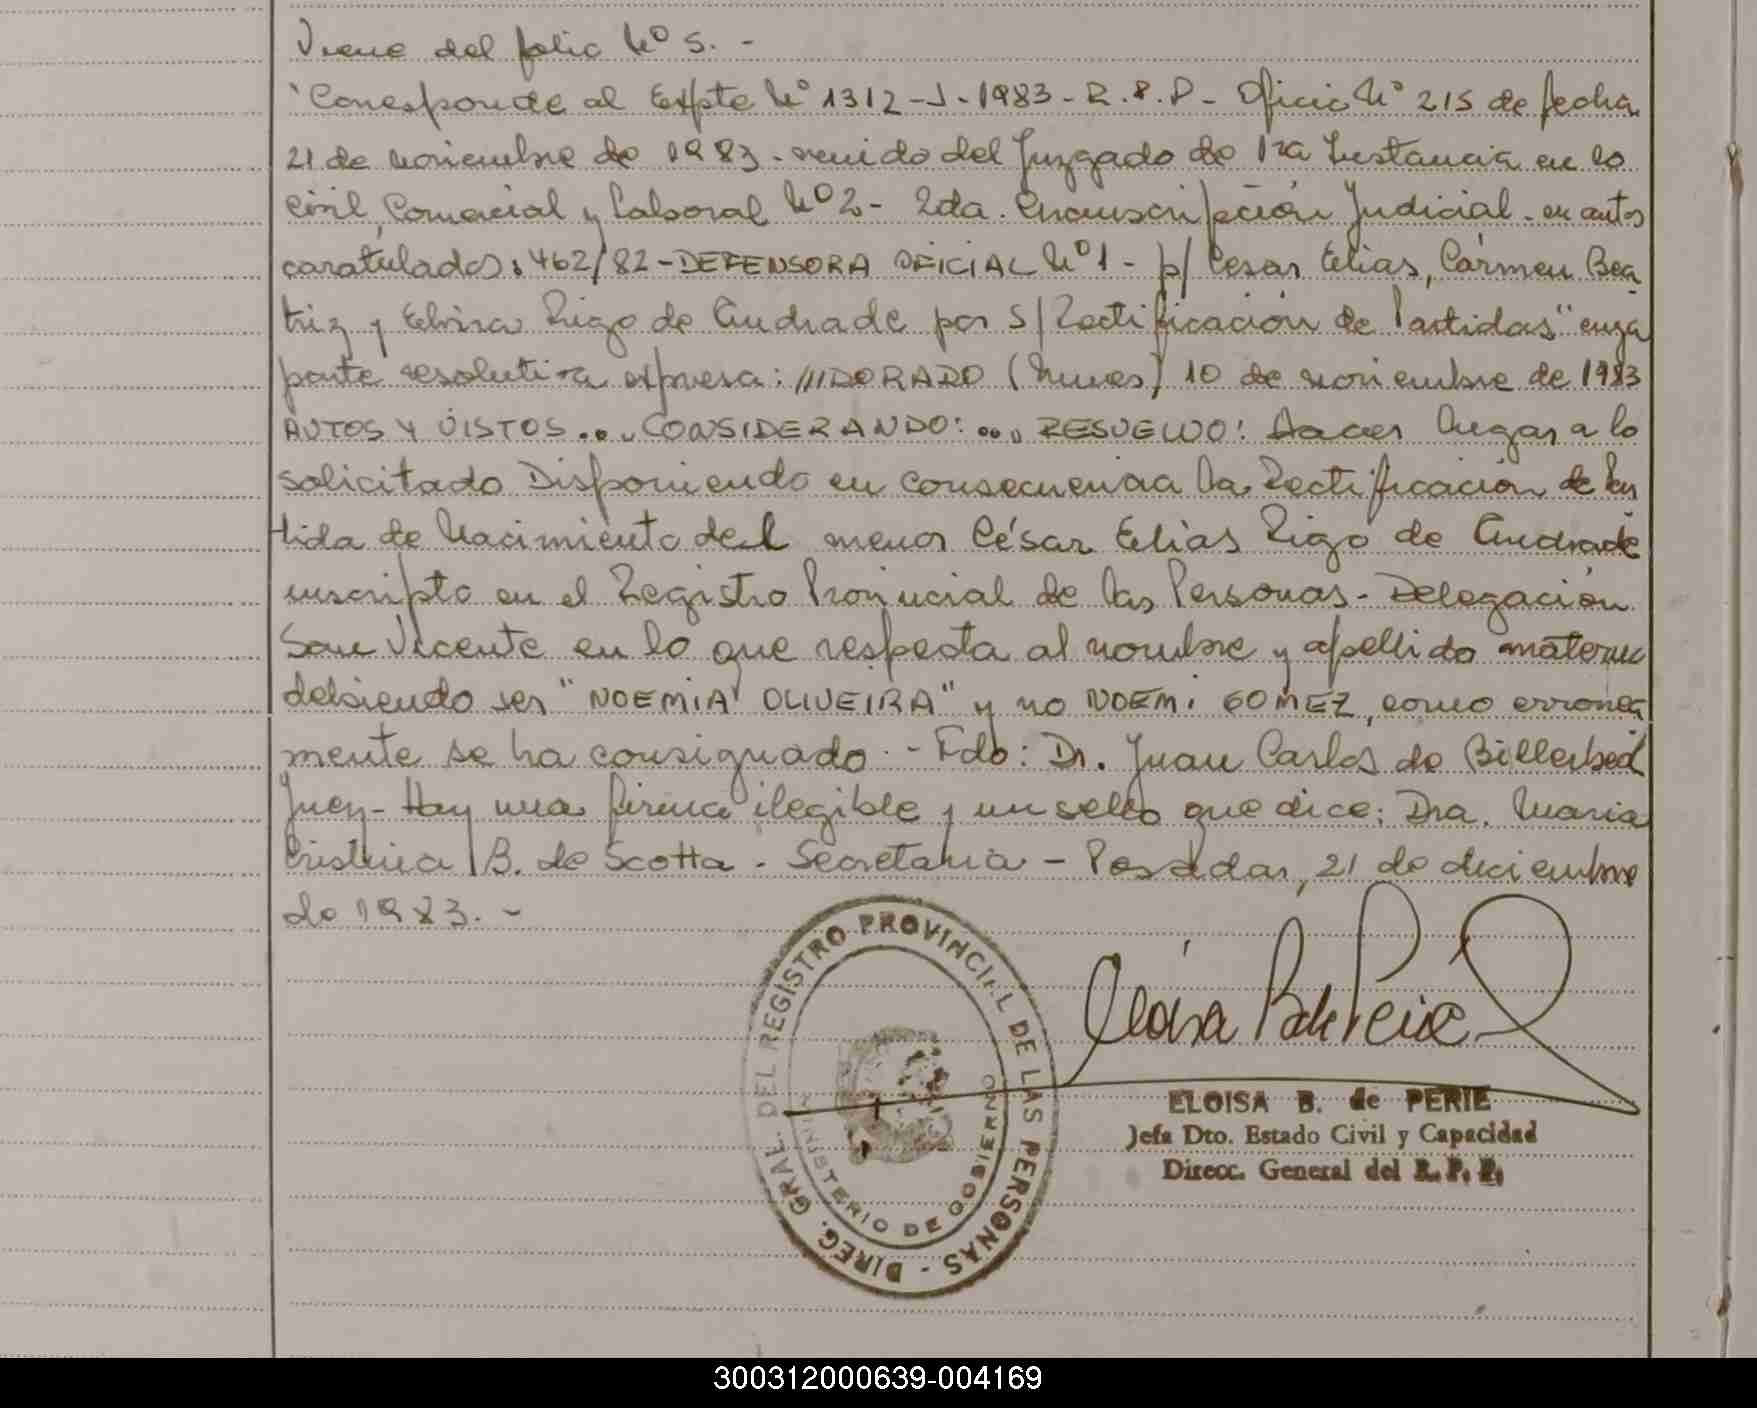 Viene del folio Nº 5. -
"Corresponde al Expte Nº 1312-J-1983-R.P.P- Oficio Nº 215 de fecha
21 de noviembre de 1983. venido del Juzgado de 1ra Instancia en lo
Civil, Comercial y Laboral Nº 2- 2da. Circunscripción Judicial. en autos
caratulados: 462/82-DEFENSORA OFICIAL Nº 1- p/ Cesar Elias, Cármen Bea
triz y Elvira Rigo de Andrade por s/Rectificación de Partidas" cuya
parte resolutiva expresa: ///DORADO (Mnes) 10 de noviembre de 1983
AUTOS Y VISTOS.... CONSIDERANDO: .... RESUELVO: Hacer lugar a lo
solicitado Disponiendo en consecuencia la Rectificación de Par
tida de Nacimiento del menor César Elias Rigo de Andrade
inscripto en el Registro Provincial de las Personas- Delegación
San Vicente en lo que respecta al nombre y apellido materno
debiendo ser "NOEMIA OLIVEIRA" y no NOEMI GOMEZ, como erronea
mente se ha consignado.- Fdo: Dr. Juan Carlos de Billerbeck
Juez- Hay una firma ilegible y un sello que dice: Dra. Maria
Cristina B. de Scotta - Secretaria - Posadas, 21 de diciembre
de 1983. -
DIREG. GRAL. DEL REGISTRO PROVINCIAL DE LAS PERSONAS -
MINISTERIO DE GOBIERNO
ELOISA B. de PERIE
Jefa Dto. Estado Civil y Capacidad
Direcc. General del R. P. P.
300312000639-004169